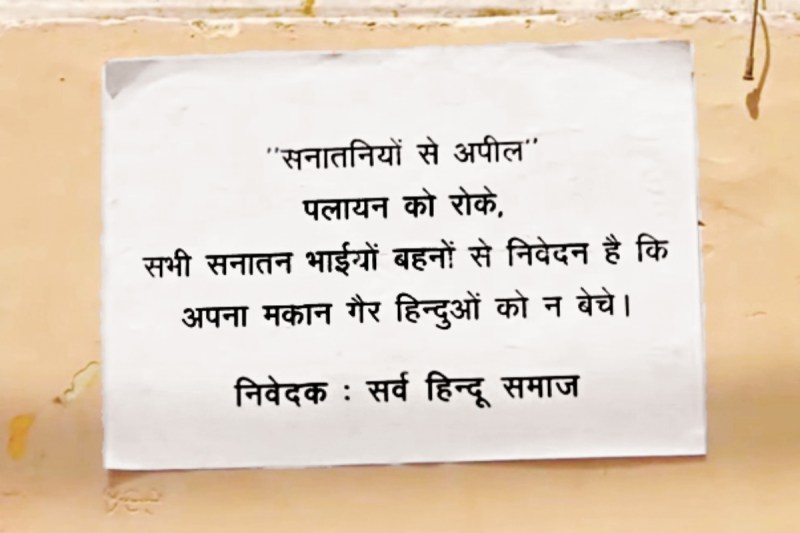 "सनातनियों से अपील"
पलायन को रोके,
सभी सनातन भाईयों बहनों से निवेदन है कि
अपना मकान गैर हिन्दुओं को न बेचे।
निवेदक : सर्व हिन्दू समाज